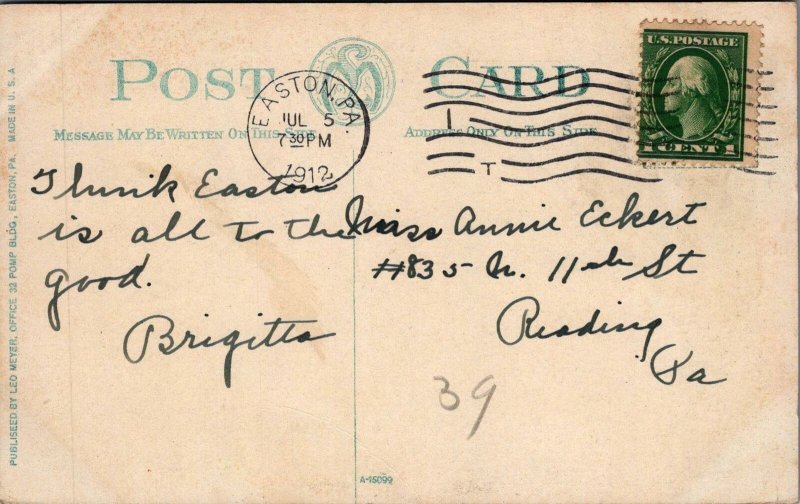 POST CARD
MESSAGE MAY BE WRITTEN ON THIS SIDE
ADDRESS ONLY ON THIS SIDE
EASTON, PA.
JUL 5
7 30 PM
1912
I
T
U.S. POSTAGE
1 CENT 1
I think Easton
is all to the
good.
Brigitta
Miss Annie Eckert
#835 N. 11th St
Reading
Pa
39
A-15099
PUBLISEED BY LEO MEYER, OFFICE 32 POMP BLDG, EASTON, PA. MADE IN U. S. A